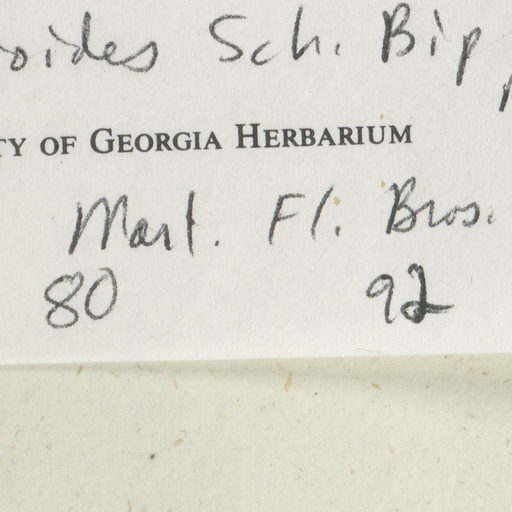 oides Sch. Bip
TY OF GEORGIA HERBARIUM
Mart. Fl. Bros.
80 92